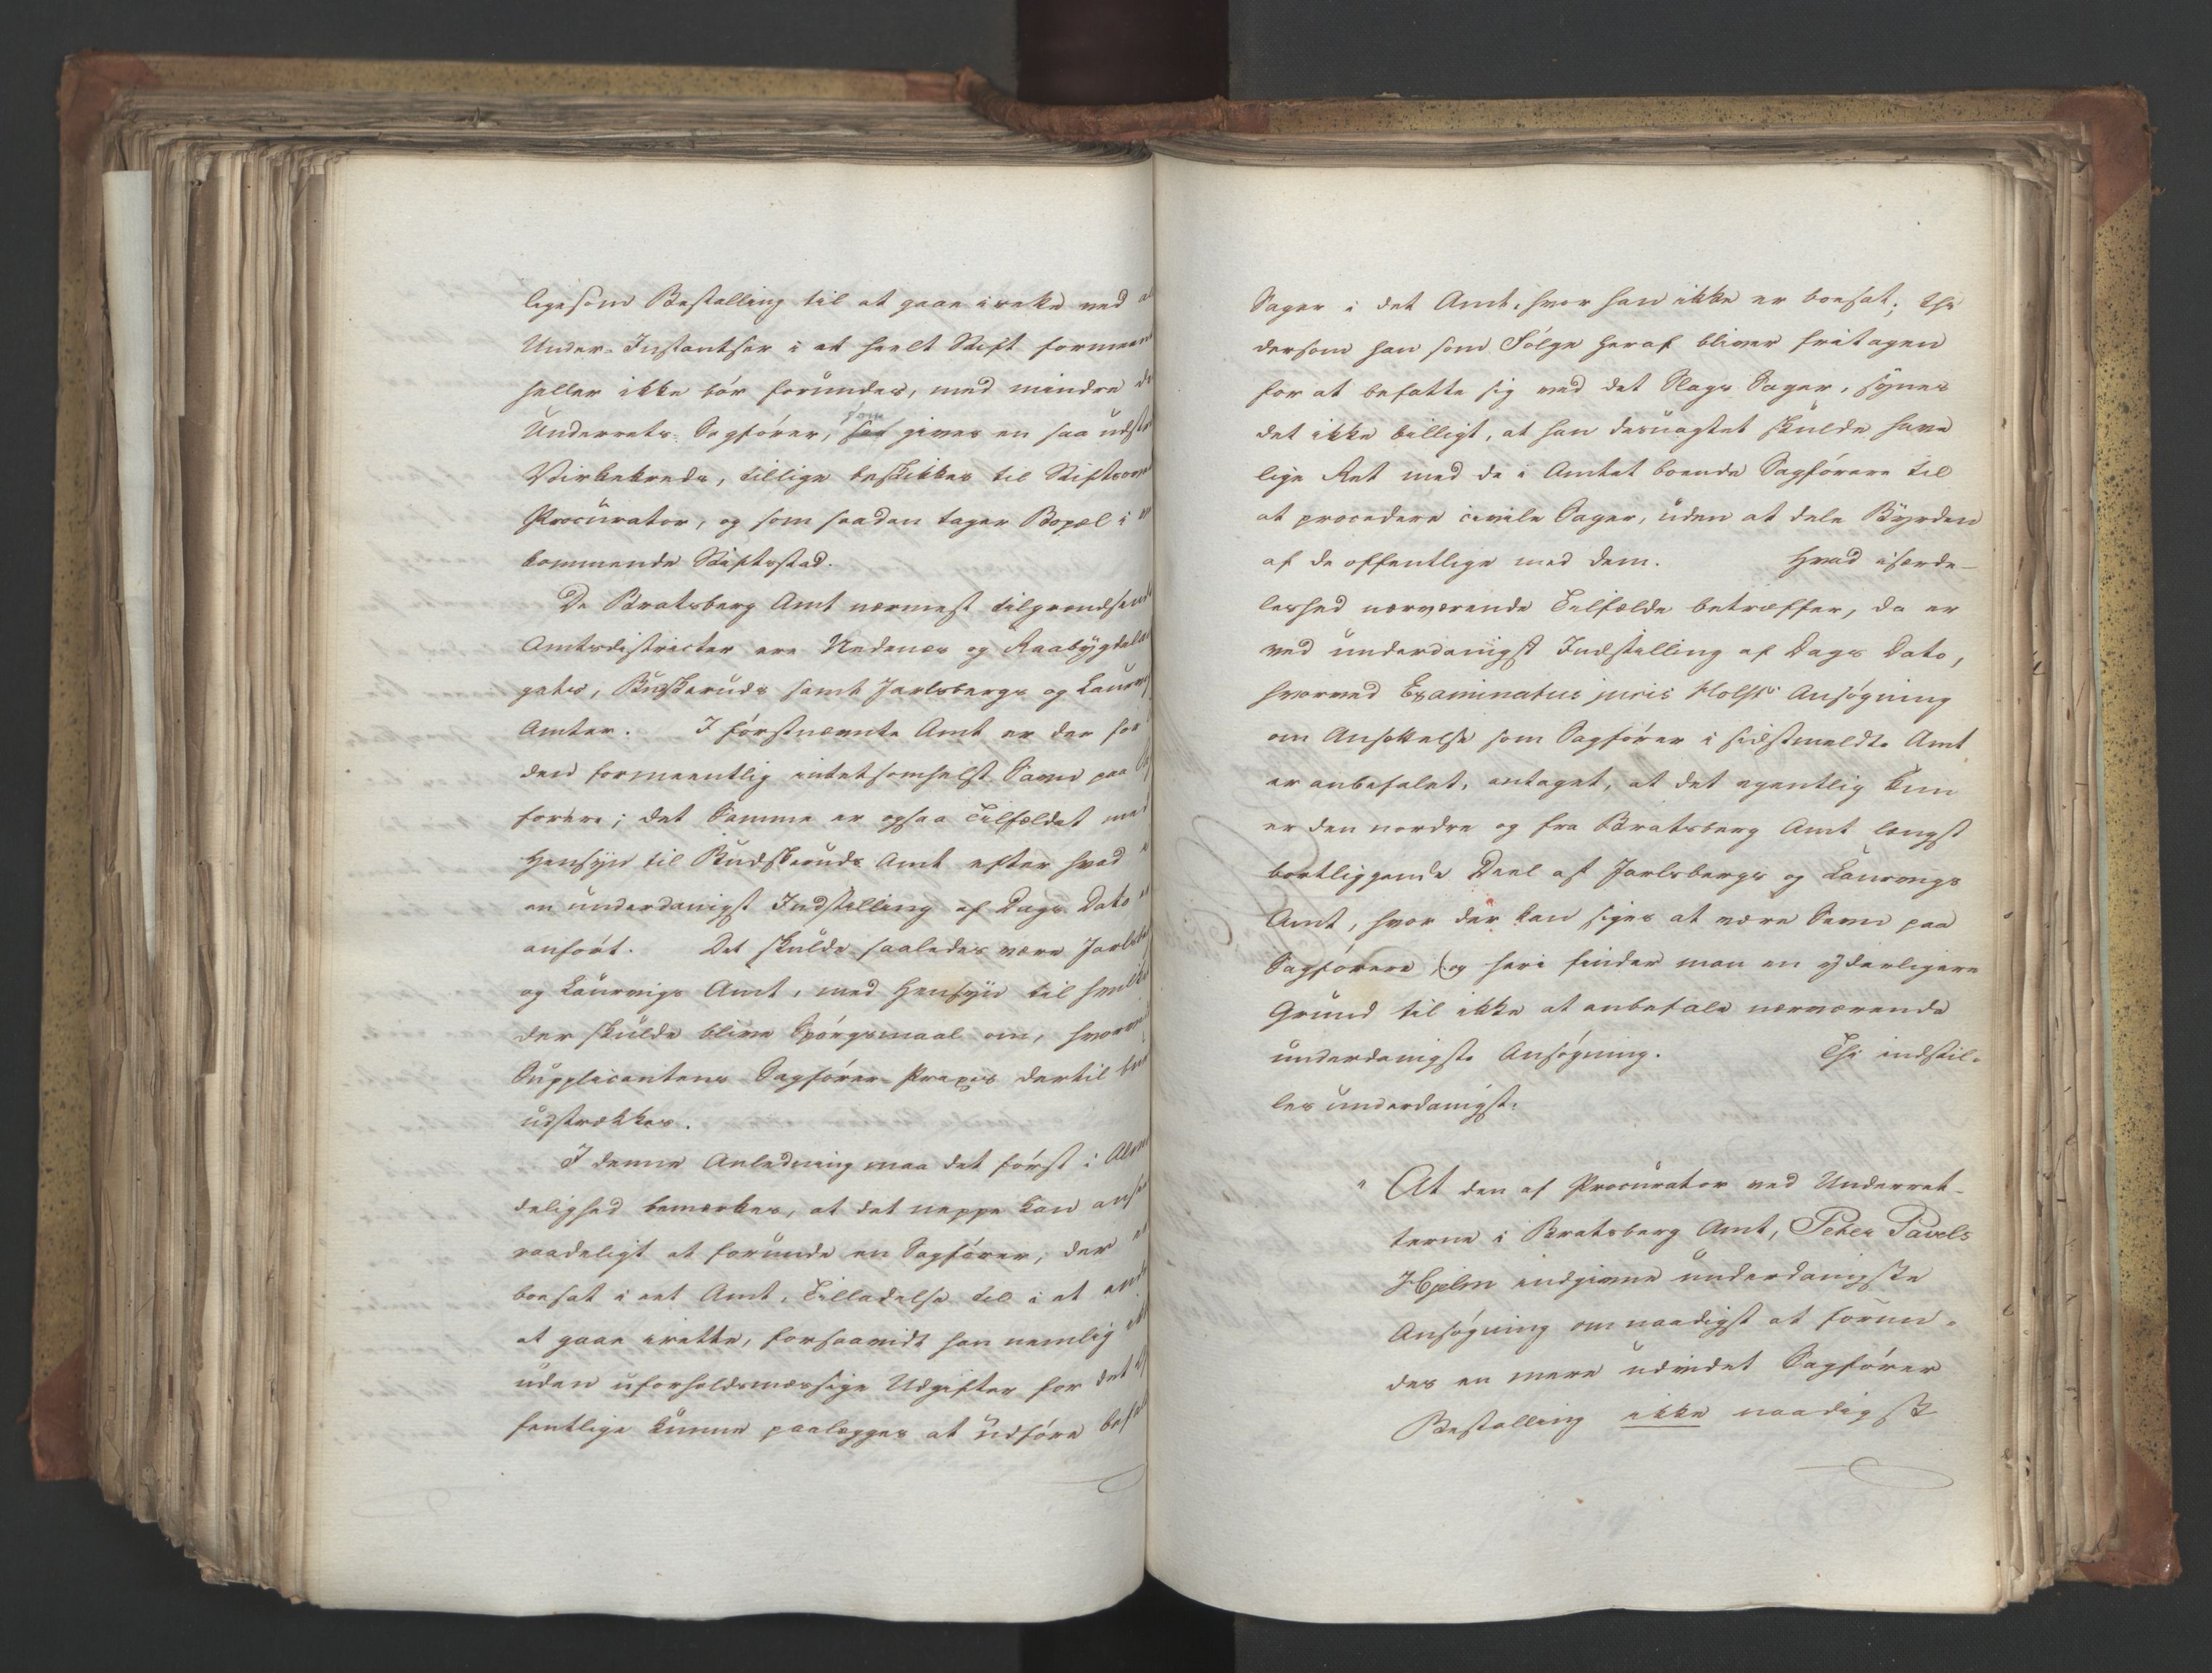 ligesom Bestalling til at gaae irette ved al
Under-Instantser i et heelt Stift formeent
heller ikke bør forundes, med mindre de
Underrets-Sagfører, som gives en saa udstr
Virkekreds, tillige beskikkes til Stiftsover
Procurator, og som saadan tager Bopæl i ve
kommende Stiftsstad.
De Bratsberg Amt nærmest tilgrændsende
Amtsdistricter ere Nedenæs og Raabygdela
gets, Buskeruds samt Jarlsbergs og Laurvig
Amter. I førstnævnte Amt er der for
den formeentlig intetsomhelst Savn paa
førere; det Samme er ogsaa Tilfældet med
Hensyn til Budskeruds Amt efter hvad i
en underdanigst Indstilling af Dags Dato er
anført. Det skulde saaledes være Jarlsbe
og Laurvigs Amt, med Hensyn til hvilket
der skulde blive Spørgsmaal om, hvorvidt
Supplicantens Sagfører-Praxis dertil bur
udstrækkes.
I denne Anledning maa det først i Almin
delighed bemærkes, at det neppe kan ansee
raadeligt at forunde en Sagfører, der er
boesat i eet Amt, Tilladelse til i et andet
at gaae irette, forsaavidt han nemlig ikke
uden uforholdsmæssige Udgifter for det Of
fentlige kunne paalægges at udføre befal
Sager i det Amt, hvor han ikke er boesat; thi
dersom han som Følge heraf bliver fritagen
for at befatte sig med det Slags Sager, synes
det ikke billigt, at han desuagtet skulde have
lige Ret med de i Amtet boende Sagførere til
at procedere civile Sager, uden at dele Byrden
af de offentlige med dem. Hvad isærde-
leshed nærværende Tilfælde betræffer, da er
ved underdanigst Indstilling af Dags Dato,
hvorved Examinatus juris Holsts Ansøgning
om Ansættelse som Sagfører i sidstmeldte Amt
er anbefalet, antaget, at det egentlig kun
er den nordre og fra Bratsberg Amt længst
bortliggende Deel af Jarlsbergs og Laurvigs
Amt, hvor der kan siges at være Savn paa
Sagførere (og heri finder man en yderligere
Grund til ikke at anbefale nærværende
underdanigste Ansøgning. Thi indstil-
les underdanigst:
" At den af Procurator ved Underret-
terne i Bratsberg Amt, Peter Pavels
Hjelm indgivne underdanigste
Ansøgning om naadigst at forun-
des en mere udvidet Sagfører
Bestalling ikke naadigst